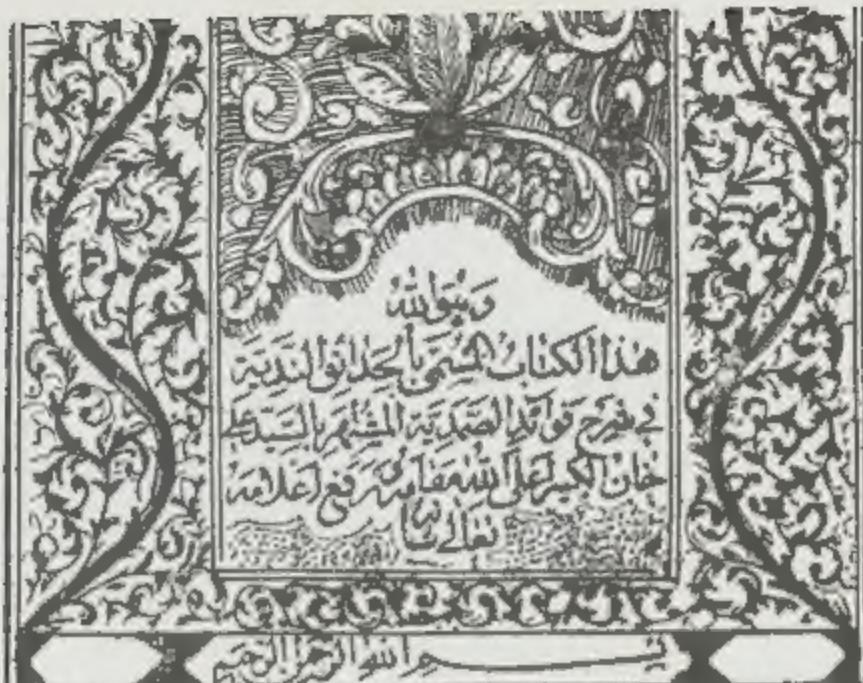 هذا الكتاب المسمى بالحدائق الندية
في شرح فوائد الصمدية المشتهر بالسيد
خان الكبير اعلى الله مقامه ورفع اعلامه
بسم الله الرحمن الرحيم